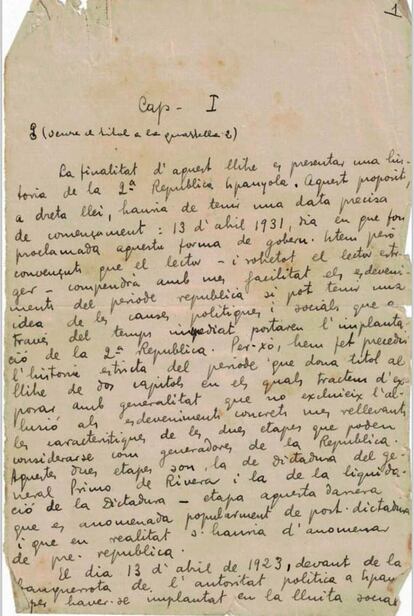 1
Cap - I
(veure el titol a la quartella 2)
La finalitat d'aquest llibre es presentar una his-
toria de la 2ª Republica Espanyola. Aquest proposit
a dreta llei, hauria de tenir una data precisa
de començament: 13 d'abril 1931, dia en que fou
proclamada aquesta forma de gobern. Item però
convençuts que el lector - i sobretot el lector estran-
ger - compendrà amb mes facilitat els esdeveni-
ments del periode republicà si pot tenir una
idea de les causes politiques i socials que a
traves del temps inmediat portaren l'implanta-
ció de la 2ª Republica. Per-xò, hem fet precedir
l'historia estricta del periode que dona titol al
llibre de dos capitols en el quals tractem d'ex-
posar amb generalitat que no exclueix l'al-
lusió als esdeveniments concrets mes rellevants
les caracteristiques de les dues etapes que poden
considerarse com generadores de la Republica.
Aquestes dues etapes son, la de dictadura del ge-
neral Primo de Rivera i la de la liquida-
ció de la Dictadura - etapa aquesta darrera
que es anomenada popularment de post-dictadura
i que en realitat s'hauria d'anomenar
de pre-republica.
El dia 13 d'abril de 1923, devant de la
banquerrota de l'autoritat politica a Espan
per haver-se implantat en la lluita social